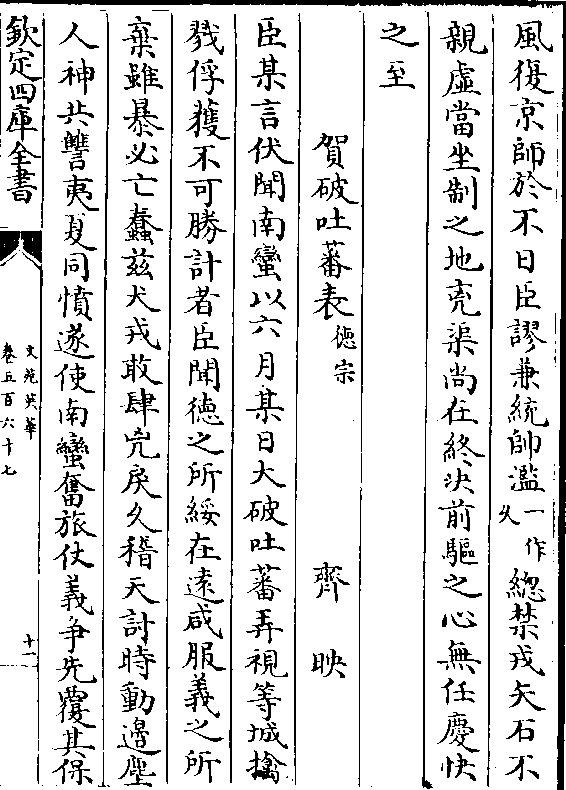 風復京師於不日臣謬兼統帥濫一作久總禁戎矢石不
親虛當坐制之地兗渠尚在終決前驅之心無任慶快
之至
賀破吐蕃表德宗 齊映
臣某言伏聞南蠻以六月某日大破吐蕃弄視等城擒
戮俘獲不可勝計者臣聞德之所綏在遠咸服義之所
棄雖暴必亡蠢兹犬戎敢肆兇戾久稽天討時動邊塵
人神共讐夷夏同憤遂使南蠻奮旅仗義争先覆其保
欽定四庫全書
文苑英華
卷五百六十七
十一